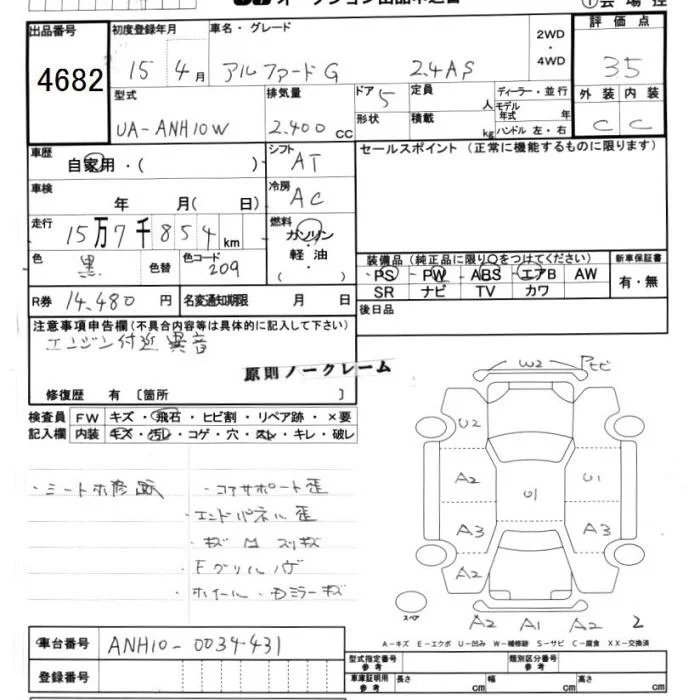 ① 会場控
出品番号
4682
初度登録年月
15 4月
車名・グレード
アルファードG 2.4AS
2WD・4WD
評価点
35
型式
UA-ANH10W
排気量
2.400 cc
ドア 5
形状
定員 人
積載 kg
ディーラー・並行
モデル年式 年
ハンドル 左・右
外装 内装
C C
車歴
自家用・( )
シフト
AT
セールスポイント (正常に機能するものに限ります)
車検
年 月( 日)
冷房
AC
走行
15万7千854 km
燃料
ガソリン
軽油
( )
色
黒 色替
色コード
209
装備品 (純正品に限り○をつけてください)
PS PW ABS エアB AW
SR ナビ TV カワ
新車保証書
有・無
R券 14,480 円
名変通知期限 月 日
後日品
注意事項申告欄 (不具合内容等は具体的に記入して下さい)
エンジン付近異音
原則ノークレーム
修復歴 有 [箇所 ]
検査員
記入欄
FW キズ・飛石・ヒビ割・リペア跡・×要
内装 キズ・汚レ・コゲ・穴・スレ・キレ・破レ
・コアサポート歪
・エンドパネル歪
・Fグリルハゲ
・ホイール・Dミラーキズ
W2
U2
A2
U1
U1
A3
A3
A2
スペア
A2 A1 A2 2
A-キズ E-エクボ U-凹み W-補修跡 S-サビ C-腐食 XX-交換済
車台番号 ANH10-0034431
登録番号
型式指定番号
参考
類別区分番号
参考
車庫証明用
参考
長さ cm 幅 cm 高さ cm